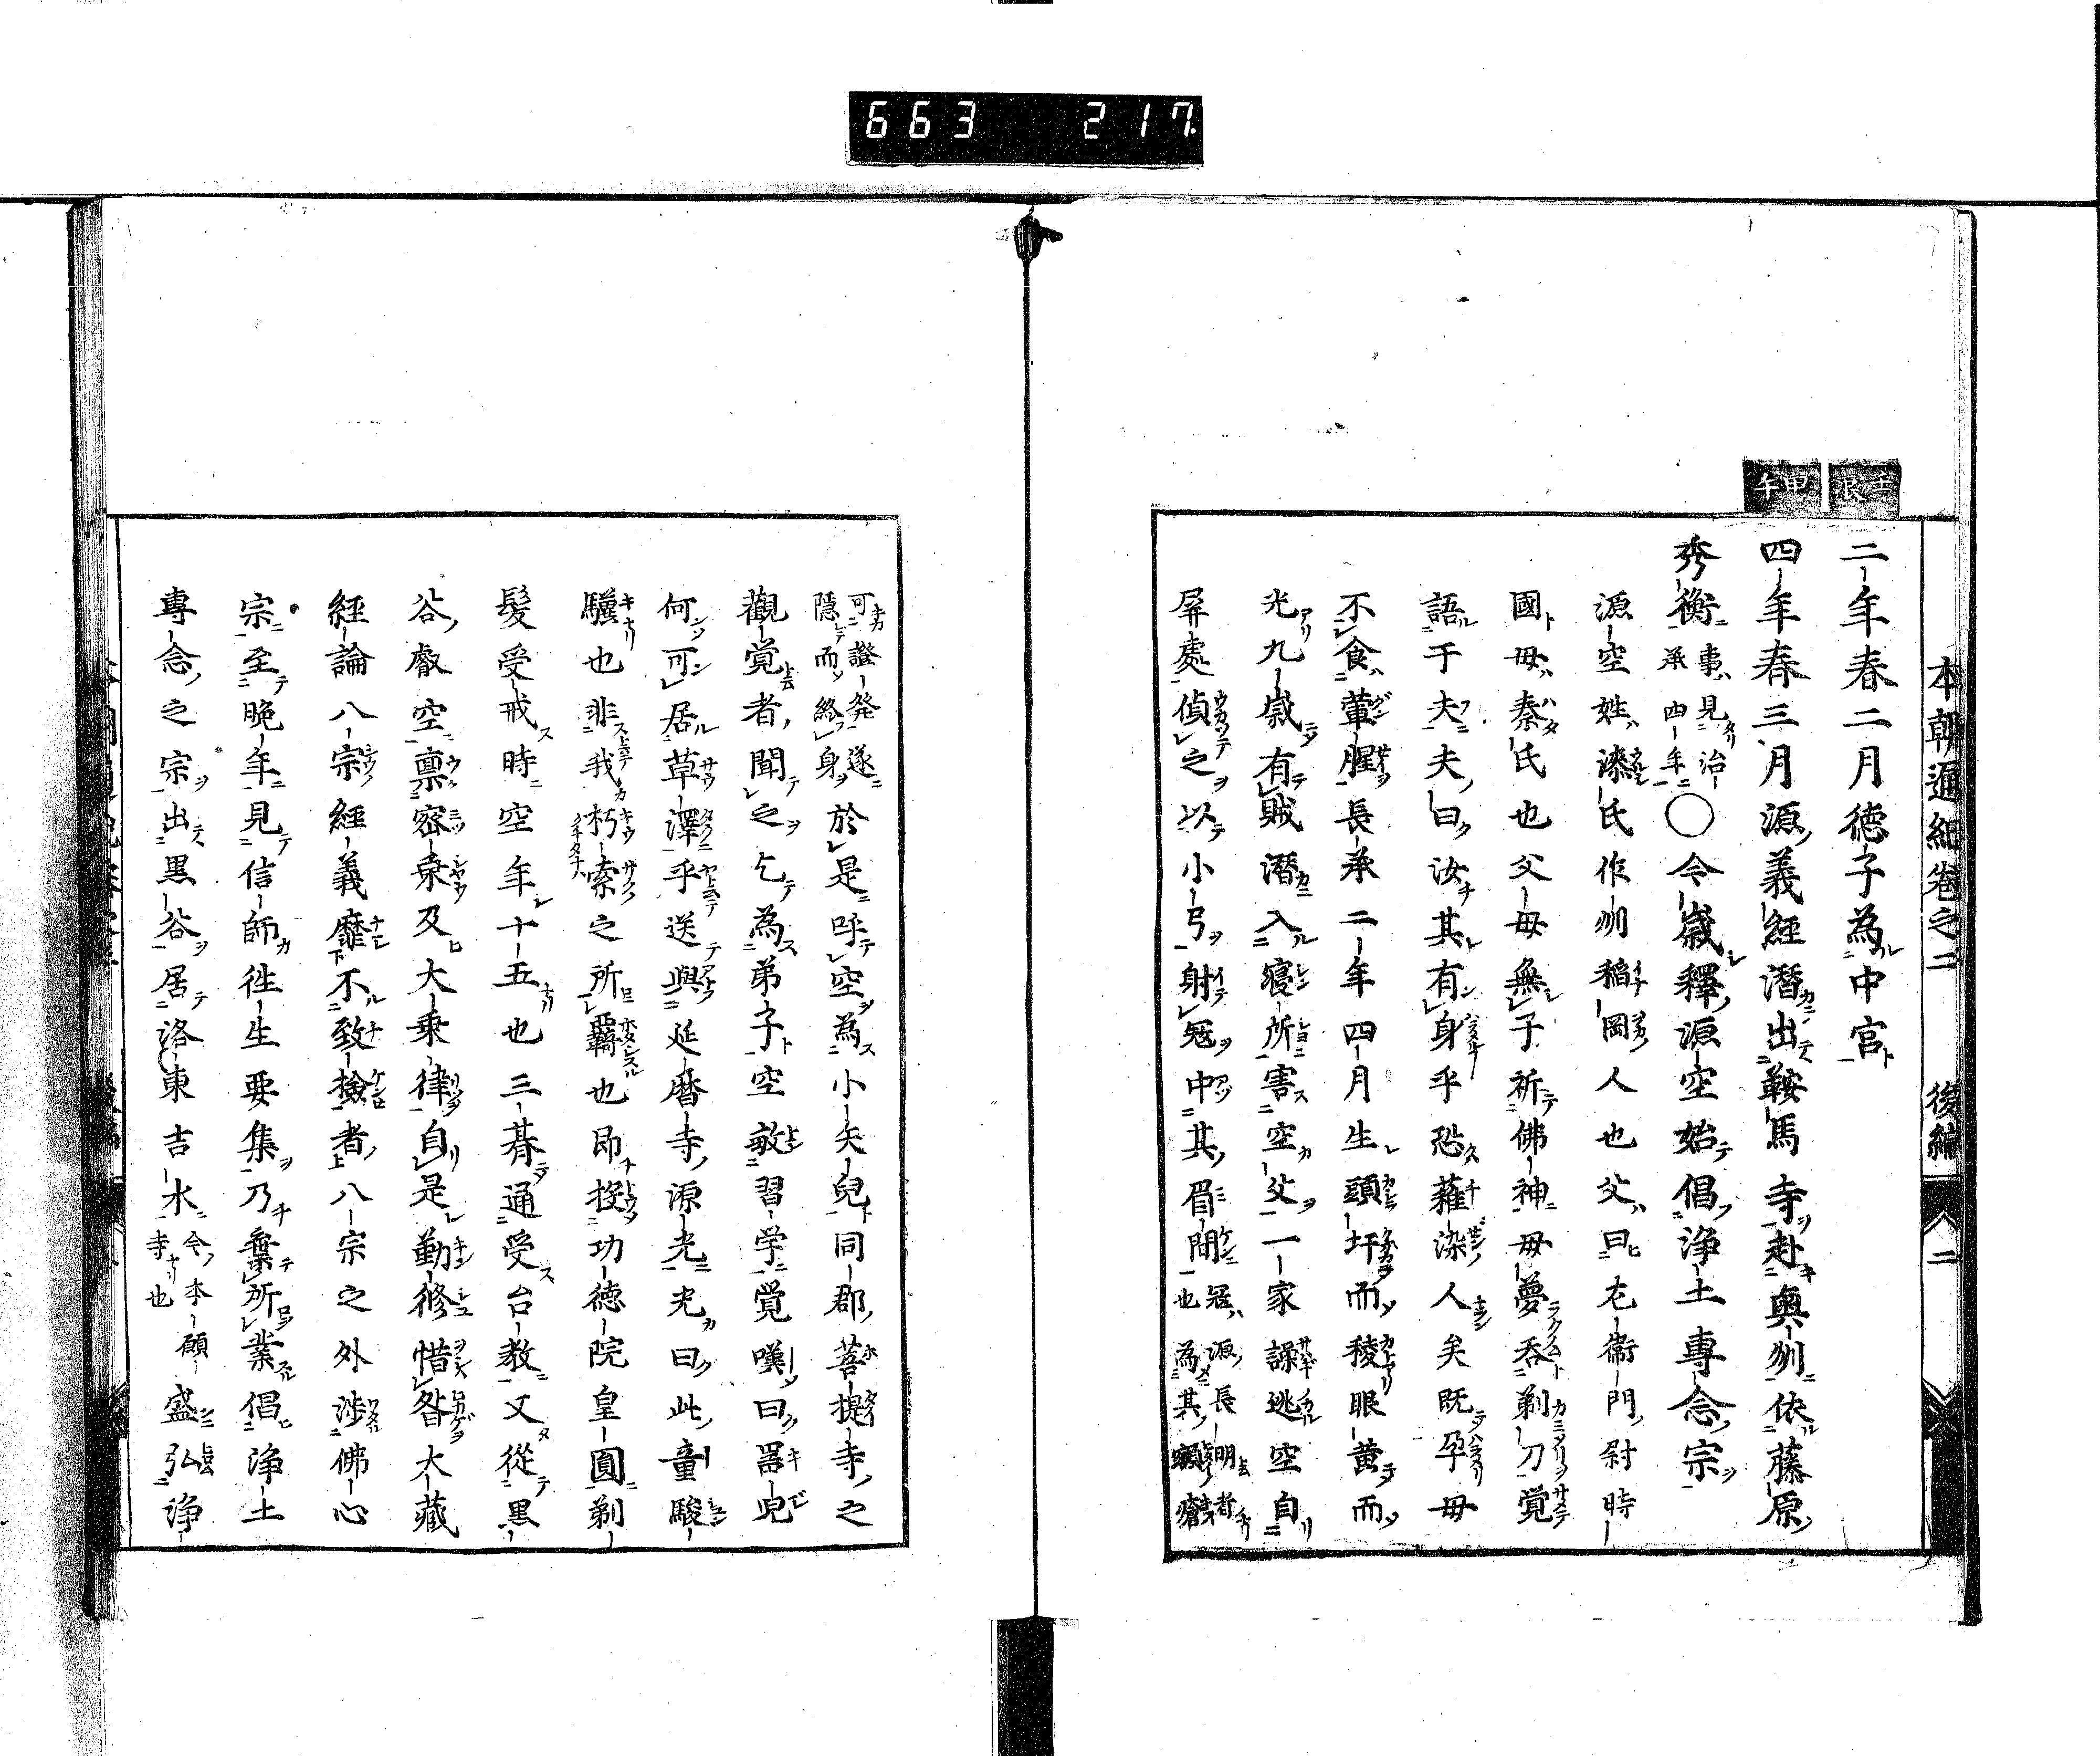 663 217.
本朝通紀卷之二 後編 二
壬辰
甲午
二年春二月德子為中宮
四年春三月源義經潛出鞍馬寺赴奧州依藤原
秀衡事見治承四年〇今歲釋源空始倡淨土專念宗
源空姓漆氏作州稲岡人也父曰左衞門尉時
國母秦氏也父母無子祈佛神母夢吞剃刀覺
語于夫夫曰汝其有身乎恐薙染人矣既孕母
不食葷腥長承二年四月生頭圩而稜眼黄而
光九歲有賊潛入寢所害空父一家譟逃空自
屏處偵之以小弓射冦中其眉間冦源長明者也為其瘡
可證発遂隱而終身於是呼空為小矢兒同郡菩提寺之
觀覺者聞之乞為弟子空敏習学覺嘆曰器皃
何可居草澤乎送與延暦寺源光光曰此童駿
驥也非我朽索之所覊也即投功德院皇圓剃
髮受戒時空年十五也三朞通受台教又從黒
谷叡空禀密乗及大乗律自是勤修惜晷大藏
經論八宗經義靡不致撿者八宗之外涉佛心
宗至晩年見信師往生要集乃棄所業倡淨土
專念之宗出黒谷居洛東吉水今本願寺也盛弘淨